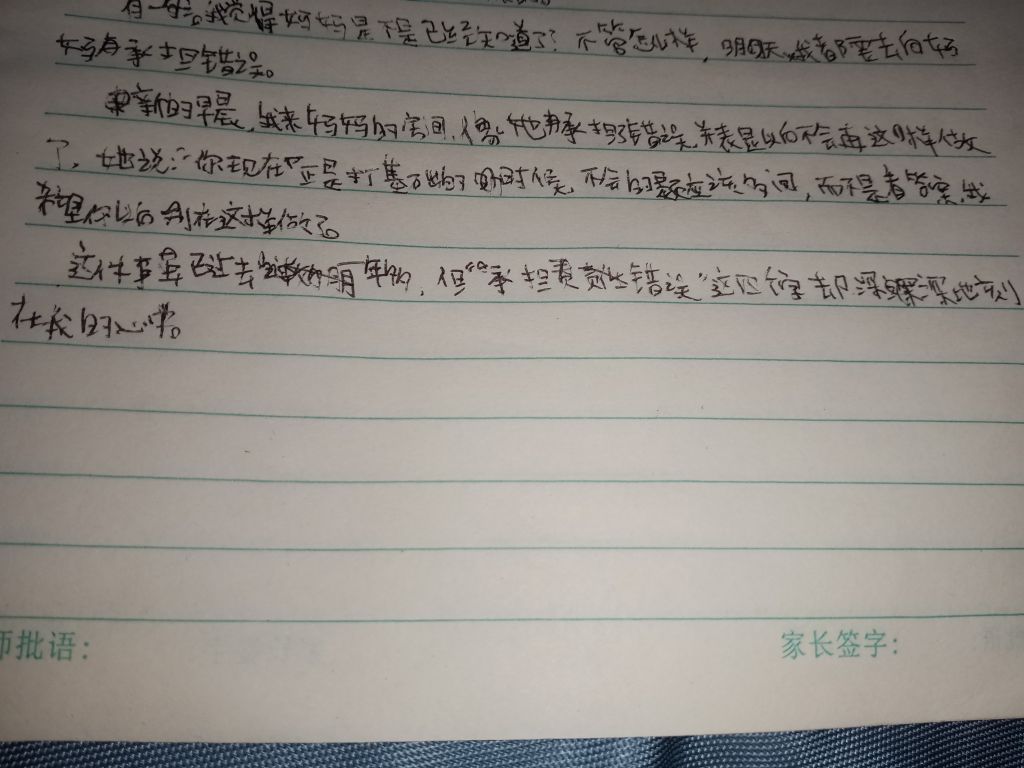 我觉得妈妈是不是已经知道了？不管怎么样，明天我都要去向妈
妈承担错误。
新的早晨，我来妈妈的房间，像他承担了错误，并表是以后不会再这样做
了，她说：“你现在正是打基础的时候，不会的题应该多问，而不是看答案，我
希望你以后别在这样做了。
这件事虽已过去，但“承担责错误”这四个字却深深地刻
在我的心中。
师批语：
家长签字：